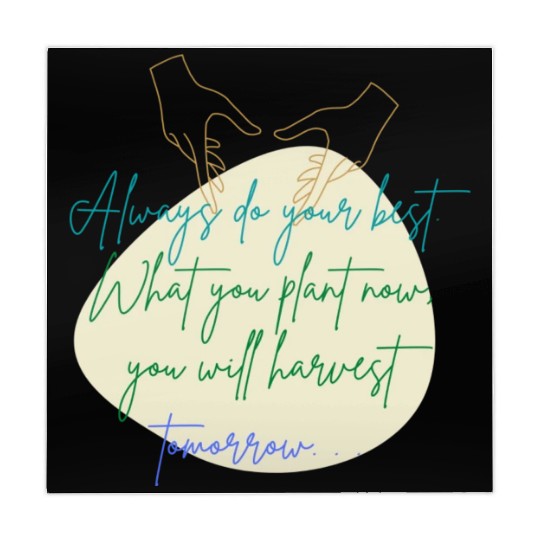 Always do your best.
What you plant now,
you will harvest
tomorrow. . . .